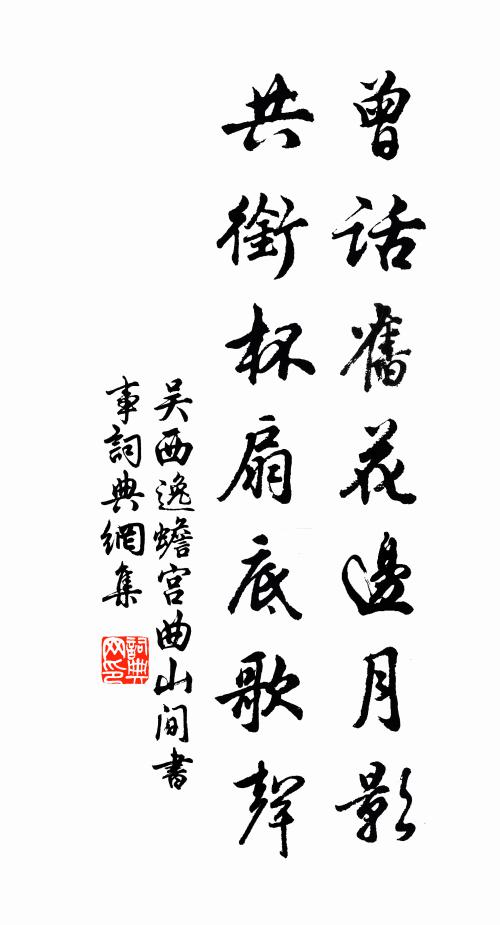 曾話舊花邊月影
共銜杯扇底歌聲
吴西逸蟾宮曲山間書
事詞典網集
詞典網印